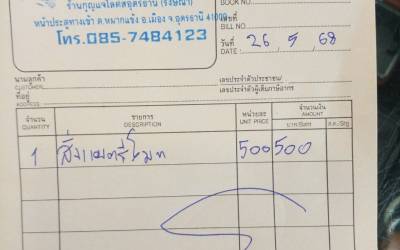 ร้านกุญแจโลตัสอุดรธานี (รังษิณา)
หน้าประตูทางเข้า ต.หมากแข้ง อ.เมือง จ.อุดรธานี 41000
โทร.085-7484123
BOOK NO.
เลขที่
BILL NO.
วันที่ 26 / 9 / 68
DATE
นามลูกค้า
CUSTOMER
เลขประจำตัวประชาชน/
ที่อยู่
เลขประจำตัวผู้เสียภาษีอากร
ADDRESS
จำนวน รายการ หน่วยละ จำนวนเงิน
QUANTITY DESCRIPTION UNIT PRICE AMOUNT
บาท/Baht ส.ต./Stg
1 500 500